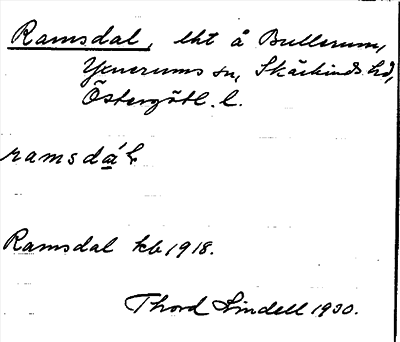 Ramsdal, lht å Bullerum,
Yxnerums sn, Skärkinds hd,
Östergötl. l.
ramsdá̱l
Ramsdal kb 1918.
Thord Lindell 1930.